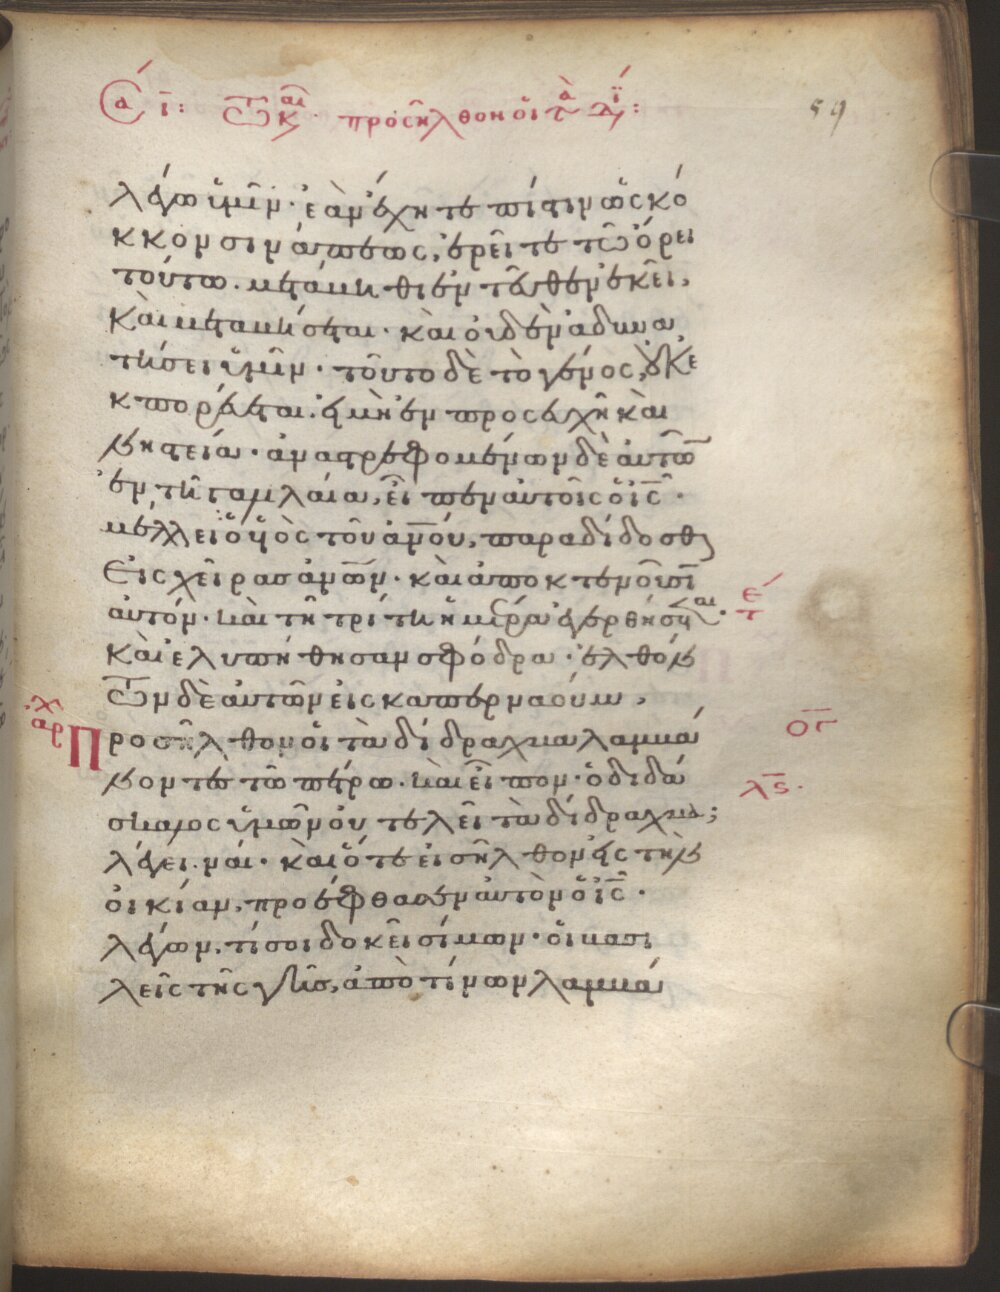 59
λέγω ὑμῖν· ἐὰν ἔχητε πίστιν ὡς κό
κκον σινάπεως, ἐρεῖτε τῶ ὄρει
τούτω. μετάβηθι ἐντεῦθεν ἐκεῖ,
καὶ μεταβήσεται· καὶ οὐδὲν ἀδυνα
τήσει ὑμῖν· τοῦτο δὲ τὸ γένος, οὐκ ἐ
κπορεύεται. εἰ μὴ ἐν προσευχῆ καὶ
νηστεία· ἀναστρεφομένων δὲ αὐτῶ
ἐν τῆ γαλιλαία, εἶπεν αὐτοῖς ὁ ις·
μέλλει ὁ υἱὸς τοῦ ανου, παραδίδοσθ
εἰς χεῖρας ανων· καὶ ἀποκτενοῦσι
αὐτόν· καὶ τῆ τρίτη ἡμέρα ἐγερθήσεται·
καὶ ἐλυπήθησαν σφόδρα· ἐλθόν
των δὲ αὐτῶν εἰς καπερναούμ,
Προσῆλθον οἱ τὰ δίδραχμα λαμβά
νοντες τῶ πέτρω. καὶ εἶπον· ὁ διδά
σκαλος ὑμῶν οὐ τελεῖ τὰ δίδραχμα;
λέγει. ναί· καὶ ὅτε εἰσῆλθον εἰς τὴν
οἰκίαν, προέφθασεν αὐτὸν ὁ ις·
λέγων, τί σοι δοκεῖ σίμων· οἱ βασι
λεῖς τῆς γῆς, ἀπὸ τίνων λαμβά